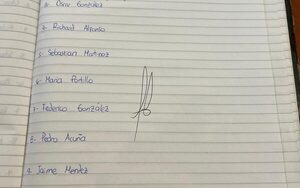 González
2- Richard Alfonso
5- Sebastian Martinez
6- Maria Portillo
7- Federico González
8- Pedro Acuña
9. Jaime Mentez